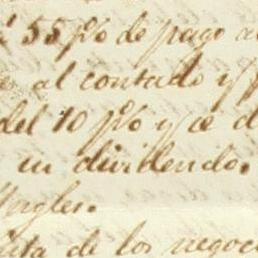 55 p% de pago a
al contado y
del 10 p% y ce d
en dividendo.
Ingles.
de los negoc